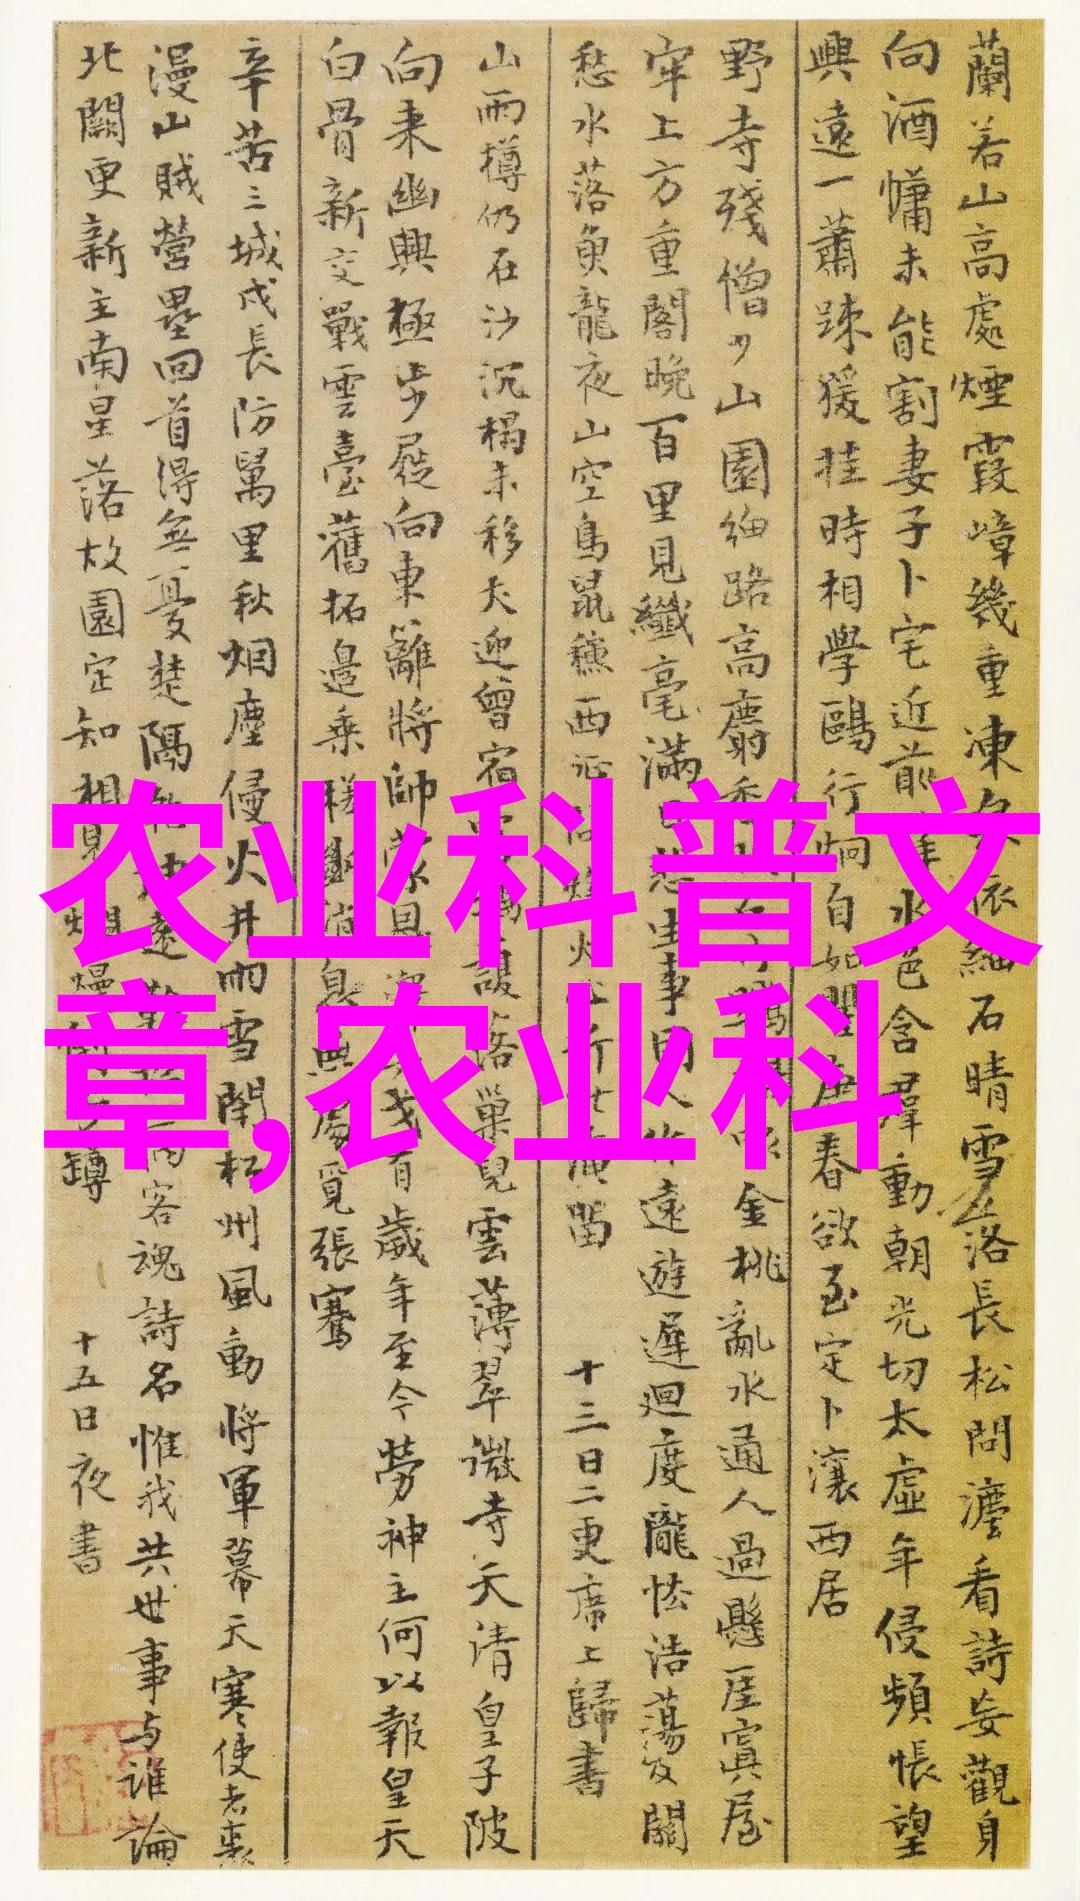 蘭若山高處煙霞嶂幾重凍泉依細石晴雪落長松問灋看詩妄觀身
向酒慵未能割妻子卜宅近前峰水色含羣動朝光切太虛年侵頻悵望
興遠一蕭踈猨挂時相學鷗行炯自如瞿唐春欲至定卜瀼西居
野寺殘僧少山園細路高麝香
金桃亂水通人過懸崖寘屋
牢上方重閣晚百里見纖毫滿目悲生事因人作遠遊遲迴度隴怯浩蕩及關
愁水落魚龍夜山空鳥鼠穐西征
留
十三日二更席上歸書
山雨樽仍在沙沉榻未移犬迎曾宿
護落巢兒雲薄翠微寺天清皇子陂
向来幽興極步屣向東籬將帥蒙恩
戈有歲年至今勞神主何以報皇天
白骨新交戰雲臺舊拓邉乗槎斷消息無處覓張騫
辛苦三城戍長防萬里秋烟塵侵火井雨雪閉松州風動將軍幕天寒使者裘
漫山賊營壘回首得無憂楚隔
客魂詩名惟我共世事与誰論
北闕更新主南星落故園定知相見
罇
十五日夜書
农业科普文
章,农业科